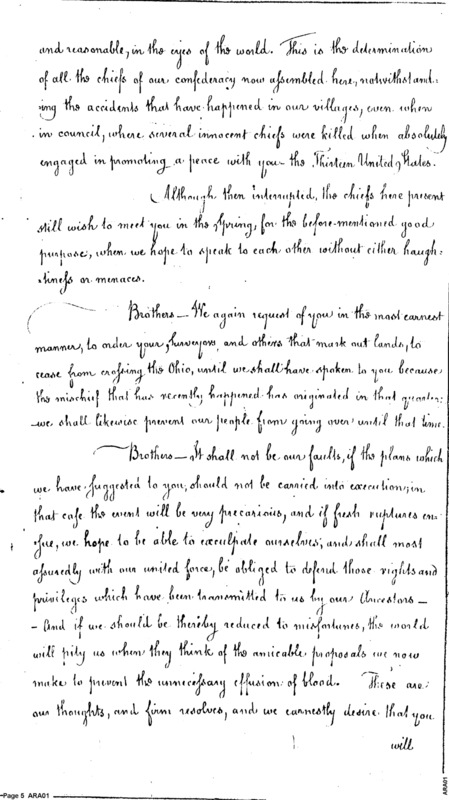 and reasonable, in the eyes of the world. This is the determination
of all the chiefs of our confederacy now assembled here, notwithstand:
ing the accidents that have happened in our villages, even when
in council, where several innocent chiefs were killed when absolutely
engaged in promoting a peace with you the Thirteen United States.
Although then interrupted, the chiefs here present
still wish to meet you in the Spring, for the before-mentioned good
purpose, when we hope to speak to each other without either haugh:
tiness or menaces.
Brothers — We again request of you in the most earnest
manner, to order your surveyors and others that mark out lands, to
cease from crossing the Ohio, until we shall have spoken to you because
the mischief that has recently happened has originated in that quarter:
we shall likewise prevent our people from going over until that time.
Brothers — It shall not be our faults, if the plans which
we have suggested to you, should not be carried into execution; in
that case the event will be very precarious, and if fresh ruptures en:
sue, we hope to be able to exculpate ourselves; and shall most
assuredly with our united force, be obliged to defend those rights and
privileges which have been transmitted to us by our Ancestors —
- And if we should be thereby reduced to misfortunes, the world
will pity us when they think of the amicable proposals we now
make to prevent the unnecessary effusion of blood. These are
our thoughts, and firm resolves, and we earnestly desire that you
will
Page 5 ARA01
ARA01